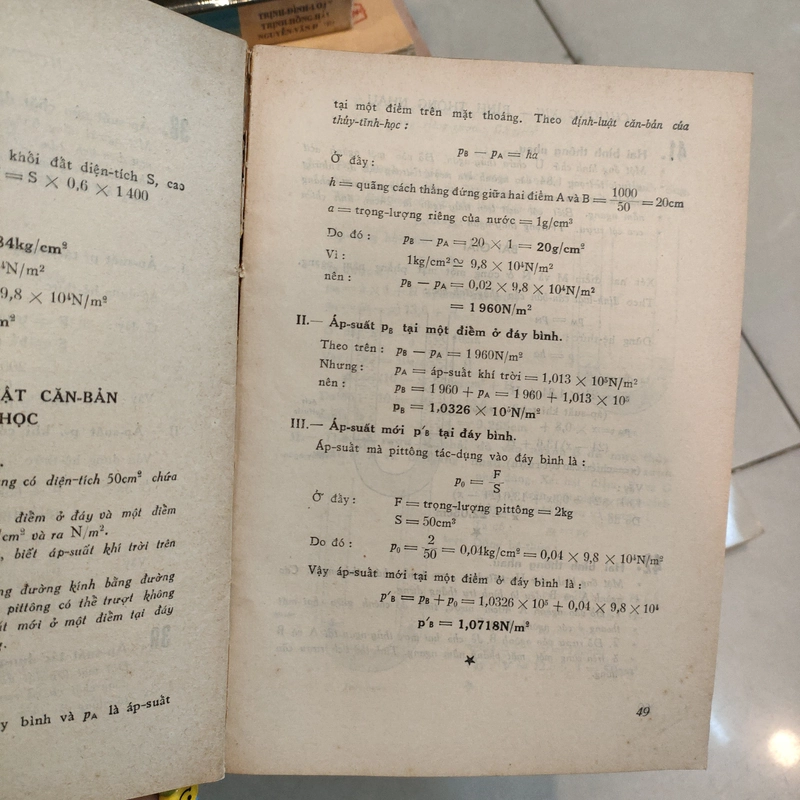 TRỊNH-ĐÌNH
TRỊNH HỒNG
NGUYỄN VĂN
khối đất diện-tích S, cao
= S × 0,6 × 1 400
34kg/cm²
⁴N/m²
9,8 × 10⁴N/m²
ẬT CĂN-BẢN
HỌC
ng có diện-tích 50cm² chứa
điểm ở đáy và một điểm
/cm² và ra N/m².
, biết áp-suất khí trời trên
ng đường kính bằng đường
pittông có thể trượt không
ất mới ở một điểm tại đáy
y bình và pA là áp-suất
tại một điểm trên mặt thoáng. Theo định-luật căn-bản của
thủy-tĩnh-học :
pB — pA = ha
Ở đây :
h = quãng cách thẳng đứng giữa hai điểm A và B = 1000/50 = 20cm
a = trọng-lượng riêng của nước = 1g/cm³
Do đó : pB — pA = 20 × 1 = 20g/cm²
Vì : 1kg/cm² ≃ 9,8 × 10⁴N/m²
nên : pB — pA = 0,02 × 9,8 × 10⁴N/m²
= 1 960N/m²
II.— Áp-suất pB tại một điểm ở đáy bình.
Theo trên : pB — pA = 1 960N/m²
Nhưng : pA = áp-suất khí trời = 1,013 × 10⁵N/m²
nên : pB = 1 960 + pA = 1 960 + 1,013 × 10⁵
pB = 1,0326 × 10⁵N/m²
III.— Áp-suất mới p'B tại đáy bình.
Áp-suất mà pittông tác-dụng vào đáy bình là :
p₀ = F/S
Ở đây : F = trọng-lượng pittông = 2kg
S = 50cm³
Do đó : p₀ = 2/50 = 0,04kg/cm² = 0,04 × 9,8 × 10⁴N/m²
Vậy áp-suất mới tại một điểm ở đáy bình là :
p'B = pB + p₀ = 1,0326 × 10⁵ + 0,04 × 9,8 × 10⁴
p'B = 1,0718N/m²
49